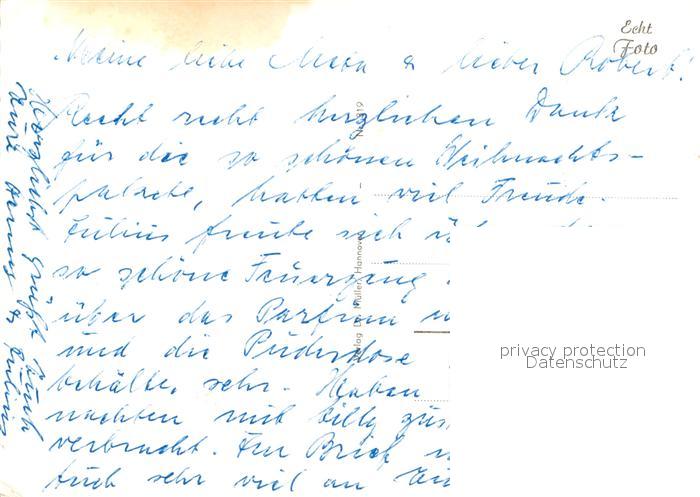 Echt
Foto
Meine liebe Meta & lieber Robert!
Recht recht herzlichen Dank
für die so schönen Weihnachts-
pakete, hatten viel Freude.
Julius freute sich
so schöne
über das Parfum
und die Puderdose
behälte, sehr. Haben
nachten mit Billy zus
verbracht. Im Brief
Euch sehr viel an
Herzlichst grüßt Euch
Eure & Julius
Verlag Dr. Müller, Hannover
privacy protection
Datenschutz